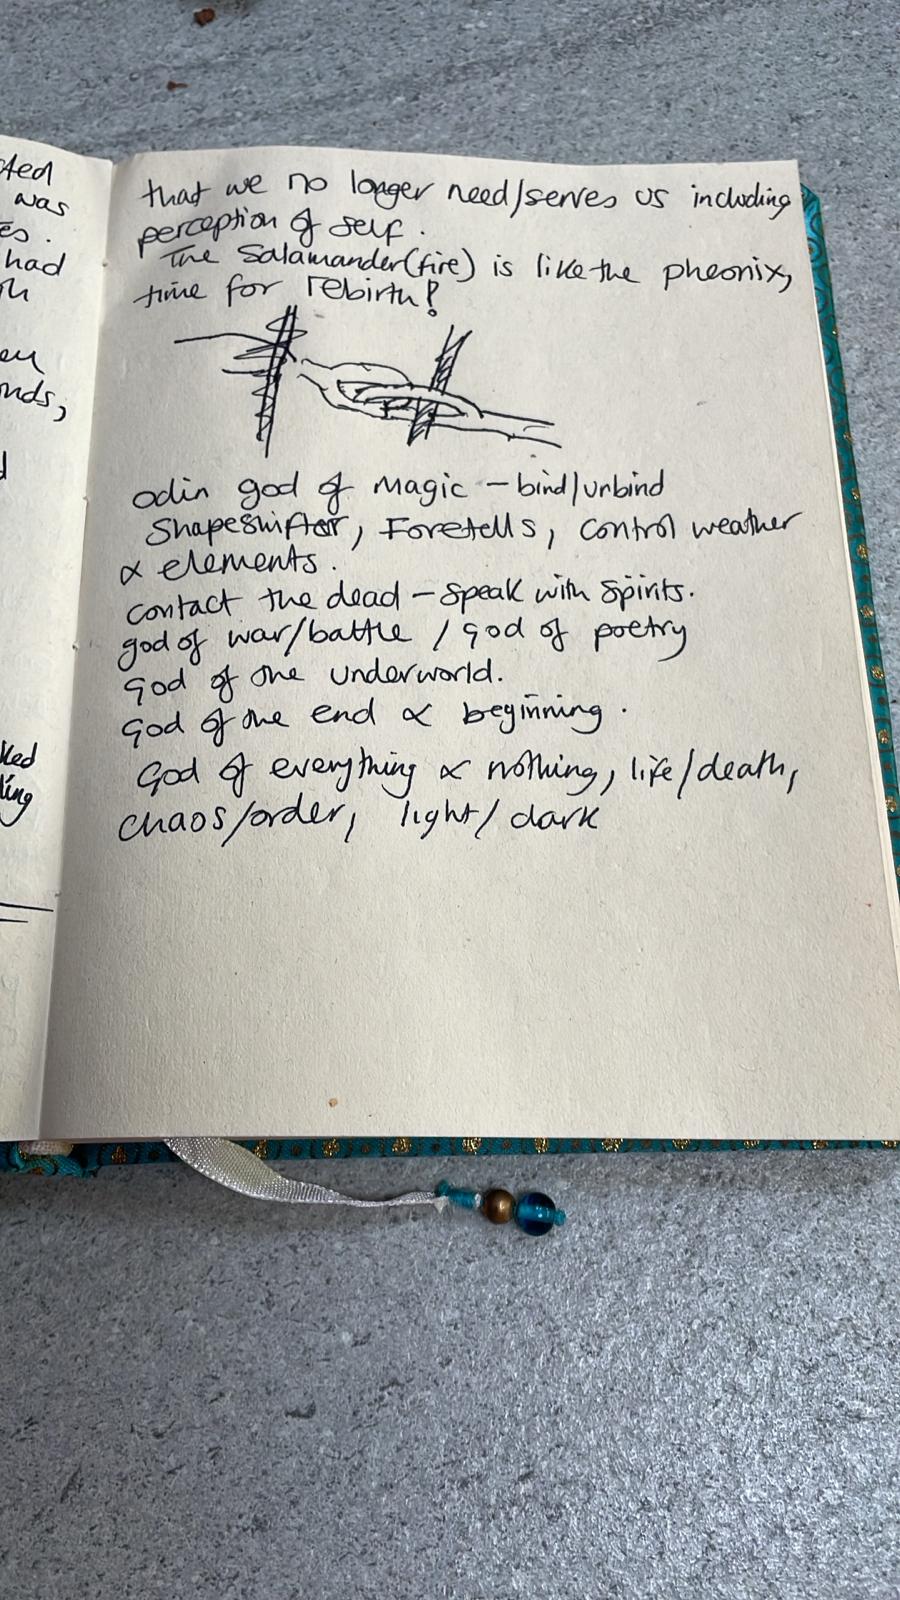 ted
was
es.
had
th
en
nds,
d
ked
ling
that we no longer need/serves us including
perception of self.
The Salamander(fire) is like the pheonix,
time for rebirth!
odin god of Magic - bind/unbind
Shapeshifter, Foretells, control weather
& elements.
contact the dead - speak with spirits.
god of war/battle / god of poetry
God of the underworld.
God of the end & beginning.
God of everything & nothing, life/death,
chaos/order, light/dark